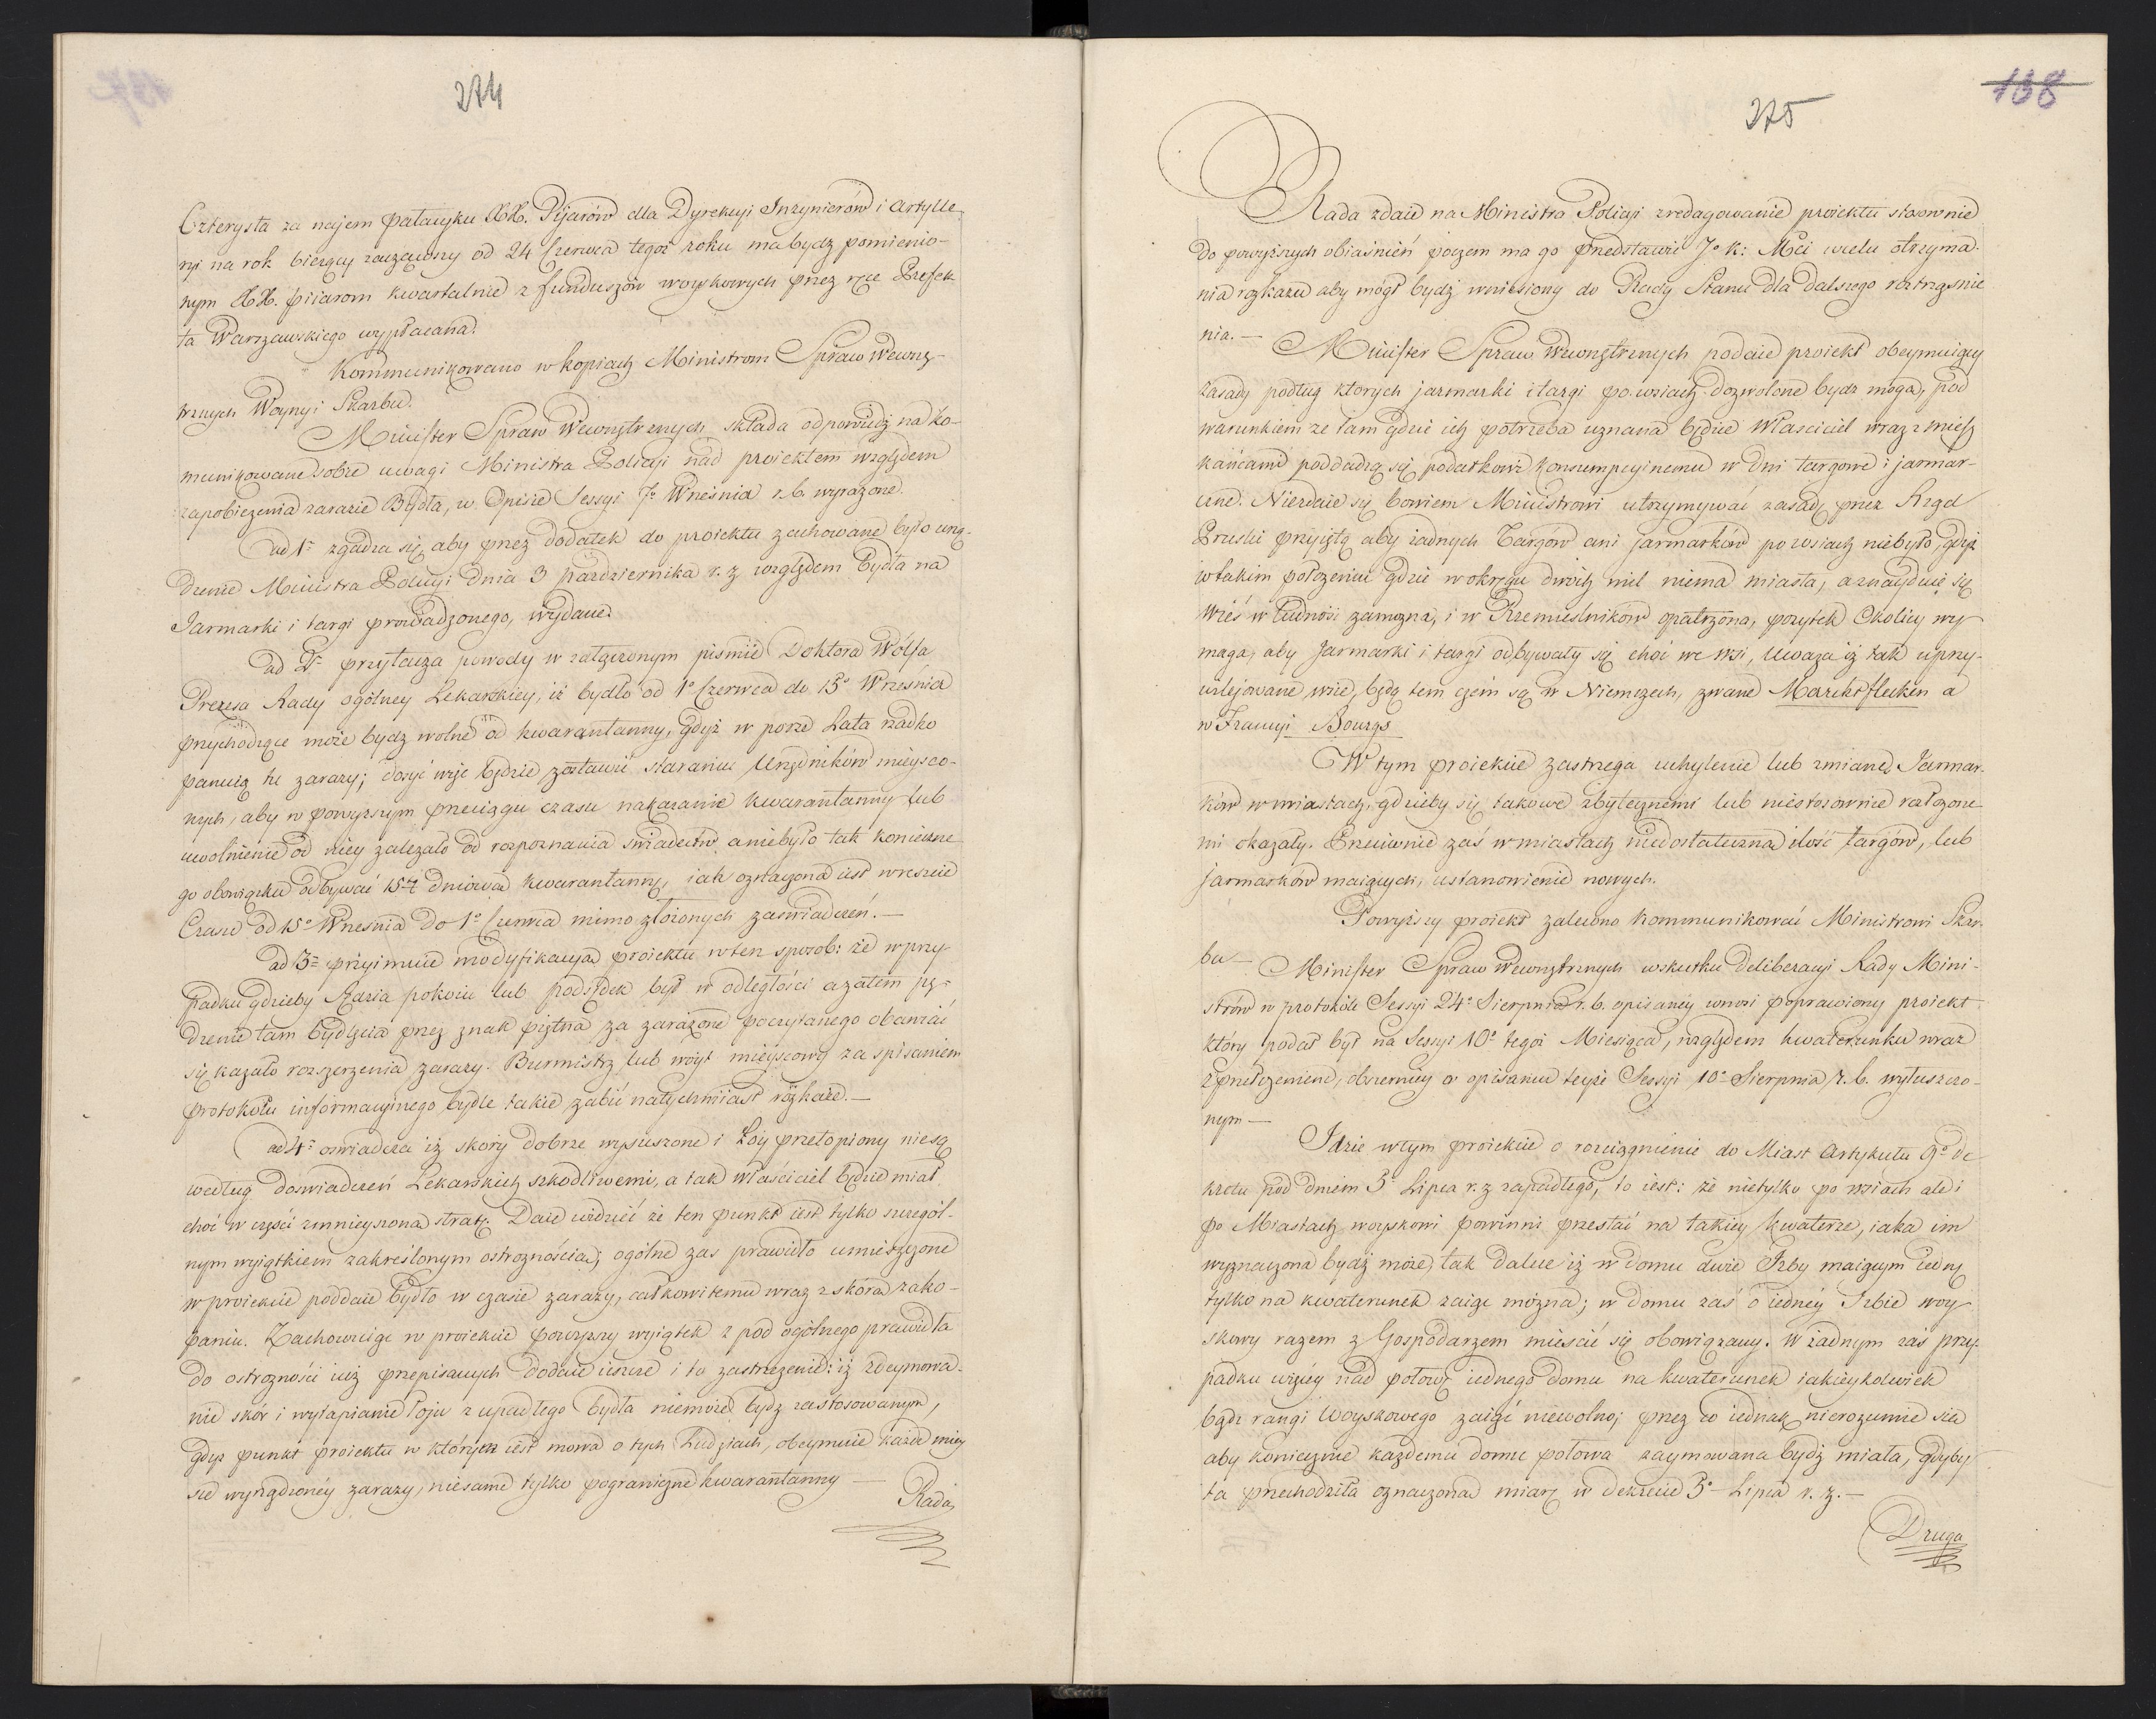 274
Czterysta za najem pałacyku XX. Pijarów dla Dyrekcyi Inżynierów i Artylle-
ryi na rok bieżący zacząwszy od 24 Czerwca tegoż roku ma bydź pomienio-
nym XX. Piiarom kwartalnie z funduszów woyskowych przez ręce Prefek-
ta Warszawskiego wypłacana.
Kommunikowano w kopiach Ministrom Spraw Wewnę-
trznych Woyny i Skarbu.
Minister Spraw Wewnętrznych składa odpowiedź na ko-
munikowane sobie uwagi Ministra Policyi nad proiektem względem
zapobieżenia zarazie Bydła, w Opisie Sessyi 7o Września r. b. wyrażone.
ad 1o zgadza się, aby przez dodatek do proiektu zachowane było urzą-
dzenie Ministra Policyi dnia 3 Października r. z. względem Bydła na
Jarmarki i targi prowadzonego, wydane.
ad 2o przytacza powody w załączonym piśmie Doktora Wolfa
Prezesa Rady ogólney Lekarskiey, iż bydło od 1o Czerwca do 15o Września
przychodzące może bydź wolne od kwarantanny, gdyż w porze Lata rzadko
panuią te zarazy; dosyć więc będzie zostawić staraniu Urzędników mieysco-
wych, aby w powyższym przeciągu czasu nakazanie kwarantanny lub
uwolnienie od niey zależało od rozpoznania świadectw, a nie było tak koniczne-
go obowiązku odbywać 15to dniową kwarantannę, iak oznaczona iest wreszcie
Czasu od 15o Września do 1o Czerwca mimo złożonych zaświadczeń.—
ad 3o przyimuie modyfikacyą proiektu w ten sposób: że w przy-
padku gdzieby Sędzia pokoiu lub podsędek był w odległości a zatem pę-
dzenie tam bydlęcia przez znak piętna za zarażone poczytanego obawiać
się kazało rozszerzenia zarazy. Burmistrz lub woyt mieyscowy za spisaniem
protokołu informacyinego bydle takie zabić natychmiast rozkaże.—
ad 4o oswiadcza iż skóry dobrze wysuszone i Łoy przetopiony nie są
według doświadczeń Lekarskich szkodliwemi, a tak właściciel będzie miał
choć w części zmnieyszoną stratę. Daie widzieć że ten punkt iest tylko szczegól-
nym wyiątkiem zakreślonym ostrożnością; ogólne zaś prawidło umieszczone
w proiekcie poddaie bydło w czasie zarazy, całkowitemu wraz z skórą zako-
paniu. Zachowuiąc w proiekcie powyższy wyiątek z pod ogólnego prawidła
do ostrożności iuż przepisanych dodaie ieszcze i to zastrzeżenie: iż zdeymowa-
nie skór i wytapianie łoju z upadłego bydła niemoże bydź zastosowanym,
gdyż punkt proiektu w którym iest mowa o tych Ludziach, obeymuie każde miey-
sce wyrządzoney zarazy, nie same tylko pograniczne kwarantanny —
Rada
138
275
Rada zdaie na Ministra Policyi zredagowanie proiektu stosownie
do powyższych obiaśnień poczem ma go przedstawić J. K: Mci w celu otrzyma-
nia rozkazu aby mógł bydź wniesiony do Rady Stanu dla dalszego roztrząśnie
nia.—
Minister Spraw Wewnętrznych podaie proiekt obeymuiący
zasady podług których jarmarki i targi po wsiach dozwolone bydź mogą, pod
warunkiem że tam gdzie ich potrzeba uznana będzie Właściciel wraz z miesz
kańcami poddadzą się podatkowi konsumpcyinemu w dni targowe i jarmar-
czne. Niezdaie się bowiem Ministrowi utrzymywać zasadę przez Rząd
Pruski przyiętą aby żadnych Targów ani jarmarków po wsiach niebyło, gdyż
w takim położeniu gdzie w okręgu dwóch mil niema miasta, a znayduie się
Wieś w ludność zamożna, i w Rzemieślników opatrzona, pożytek Okolicy wy
maga, aby Jarmarki i targi odbywały się choć we wsi, Uważa iż tak uprzy-
wilejowane wsie, będą tem czém są w Niemczech, zwane Marchtflecken a
w Francyi Bourgs
W tym proiekcie zastrzega uchylenie lub zmianę Jarmar-
ków w miastach, gdzieby się takowe zbytecznemi lub niestosownie rozłożone-
mi okazały. Przeciwnie zaś w miastach niedostateczną ilość targów, lub
jarmarków maiących, ustanowienie nowych.
Powyższy proiekt zalecono kommunikować Ministrowi Skar-
bu—
Minister Spraw Wewnętrznych w skutku deliberacyi Rady Mini-
strów w protokole Sessyi 24o Sierpnia r. b. opisaney wnosi poprawiony proiekt
który podał był na Sessyi 10o tegoż Miesiąca, względem kwaterunku wraz
z przełożeniem, obszerniey w opisaniu teyże Sessyi 10o Sierpnia r. b. wyłuszczo-
nym—
Idzie w tym proiekcie o rozciągnienie do Miast Artykułu 9o de
kretu pod dniem 3o Lipca r. z. zapadłego, to iest: że nietylko po wsiach ale i
po Miastach woyskowi powinni przestać na takiey kwaterze, iaka im
wyznaczona bydź może, tak dalece iż w domu dwie Izby maiącym iedną
tylko na kwaterunek zaiąć można; w domu zaś o iedney Izbie woy-
skowy razem z Gospodarzem mieścić się obowiązany. W żadnym zaś przy-
padku więcey nad połowę iednego domu na kwaterunek iakieykolwiek
bądź rangi Woyskowego zaiąć niewolno; przez co iednak nierozumie się
aby koniecznie każdemu domu połowa zaymowana bydź miała, gdyby
ta przechodziła oznaczoną miarę w dekrecie 3o Lipca r. z.—
Druga